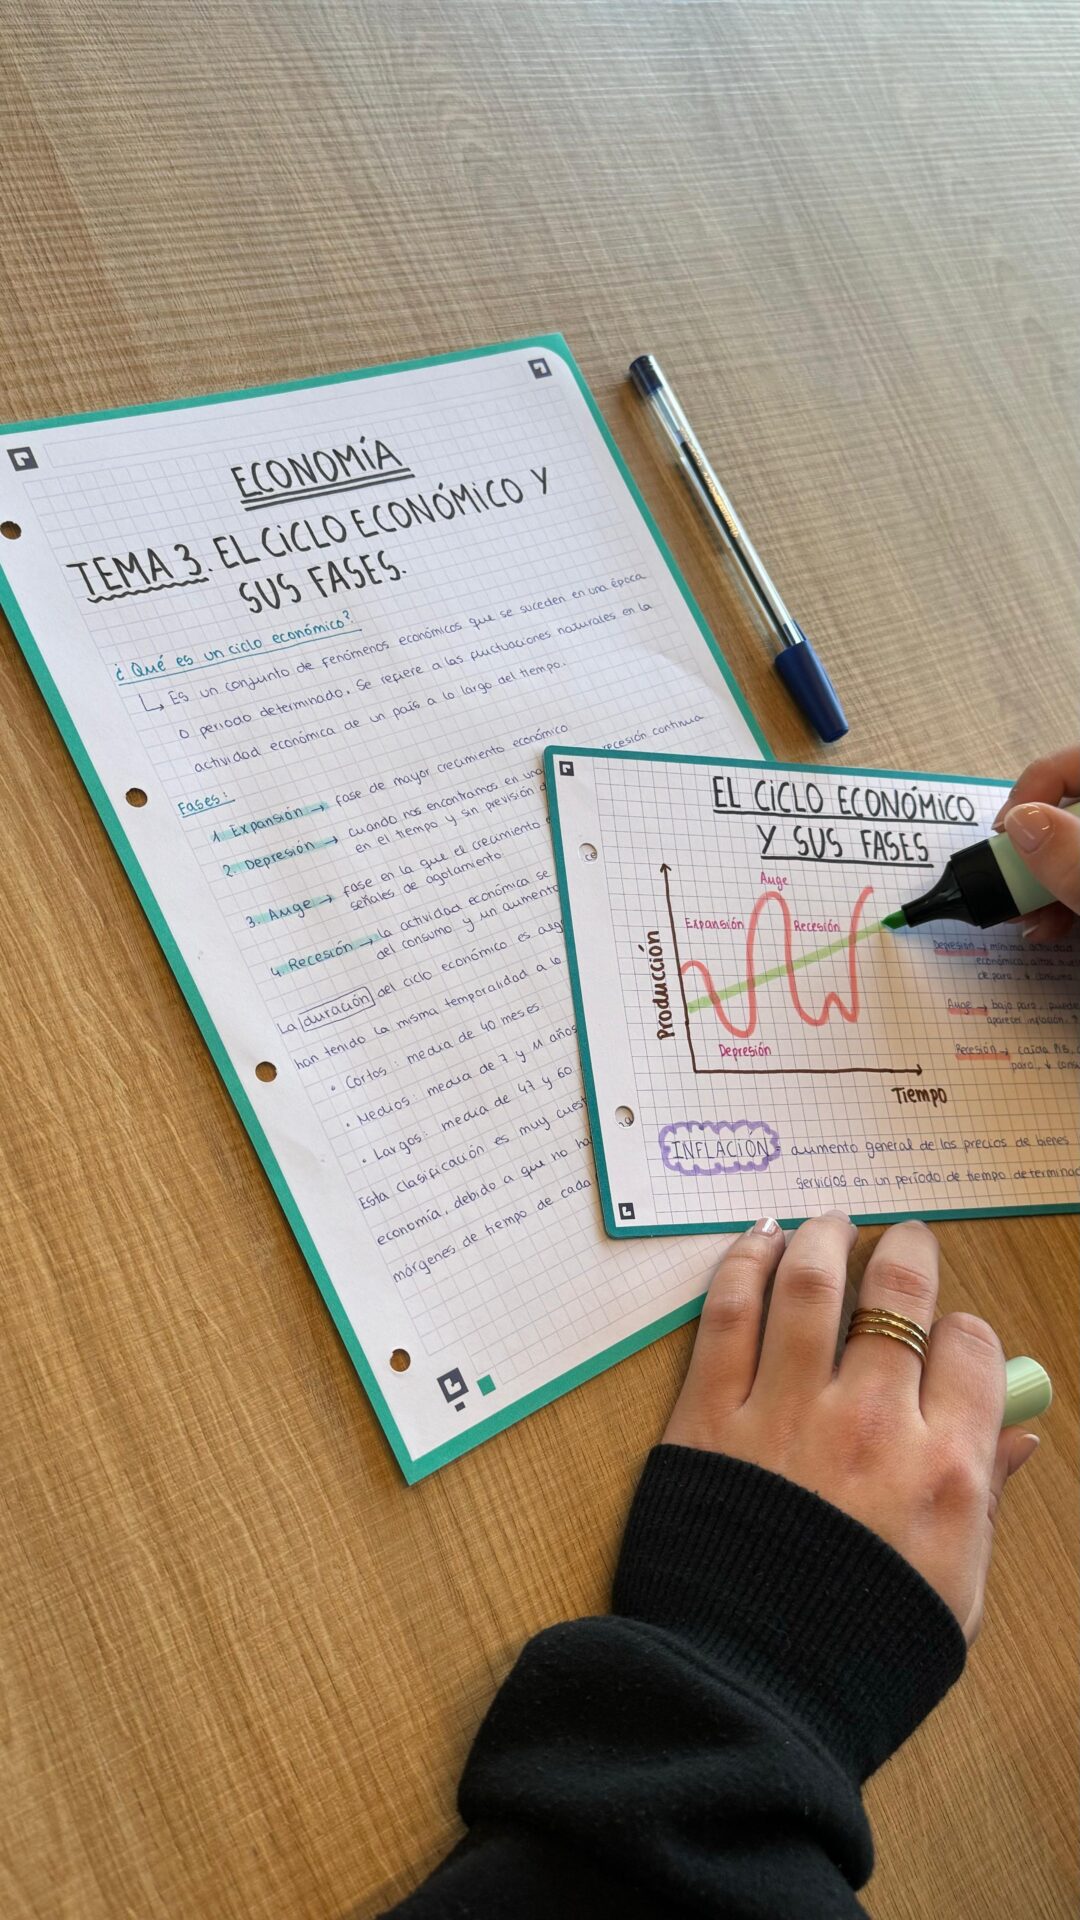 ECONOMÍA
TEMA 3. EL CICLO ECONÓMICO Y
SUS FASES.
¿Qué es un ciclo económico?
Es un conjunto de fenómenos económicos que se suceden en una época
o periodo determinado. Se refiere a las fluctuaciones naturales en la
actividad económica de un país a lo largo del tiempo.
Fases:
1. Expansión → fase de mayor crecimiento económico
2. Depresión → cuando nos encontramos en una recesión continua
en el tiempo y sin previsión
3. Auge → fase en la que el crecimiento
señales de agotamiento
4. Recesión → la actividad económica se
del consumo y un aumento
La duración del ciclo económico es
han tenido la misma temporalidad a lo
• Cortos: media de 40 meses.
• Medios: media de 7 y 11 años
• Largos: media de 47 y 60
Esta clasificación es muy
economía, debido a que no
márgenes de tiempo de cada
EL CICLO ECONÓMICO
Y SUS FASES
Auge
Expansión
Recesión
Depresión
Producción
Tiempo
Depresión → mínima actividad
económica, altos
de paro, ↓ consumo
Auge → bajo paro, puede
aparecer inflación,
Recesión → caída PIB,
paro, ↓
INFLACIÓN: aumento general de los precios de bienes
servicios en un período de tiempo